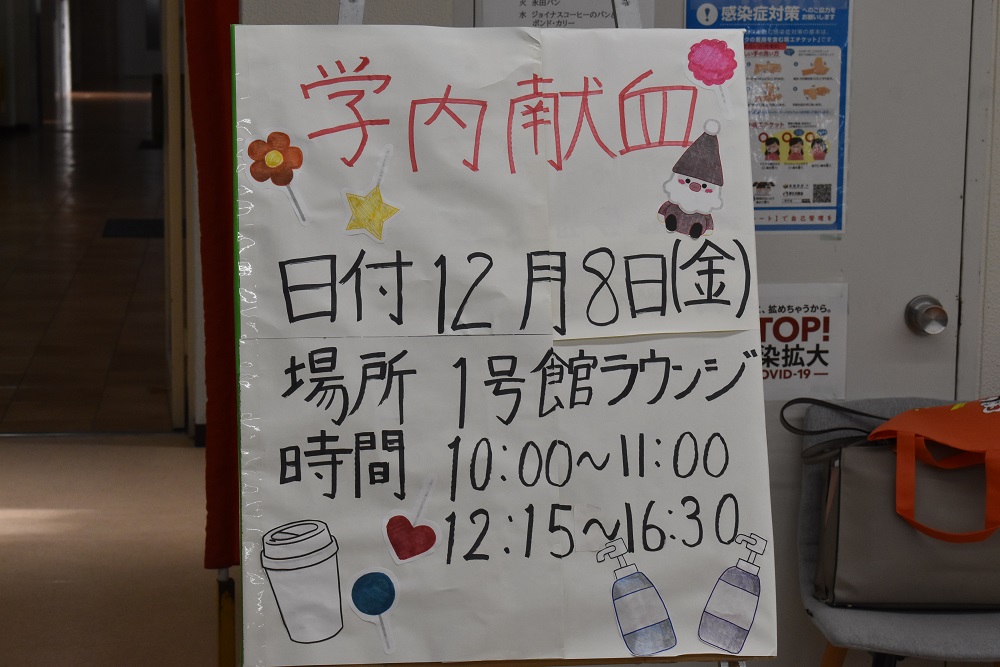 火 永田パン
水 ジョイナスコーヒーのパン&
ボンド・カリー
感染症対策 へのご協力を
お願いします
学内献血
日付 12月8日(金)
場所 1号館ラウンジ
時間 10:00~11:00
12:15~16:30
、拡めちゃうから。
TOP!
染拡大
OVID-19